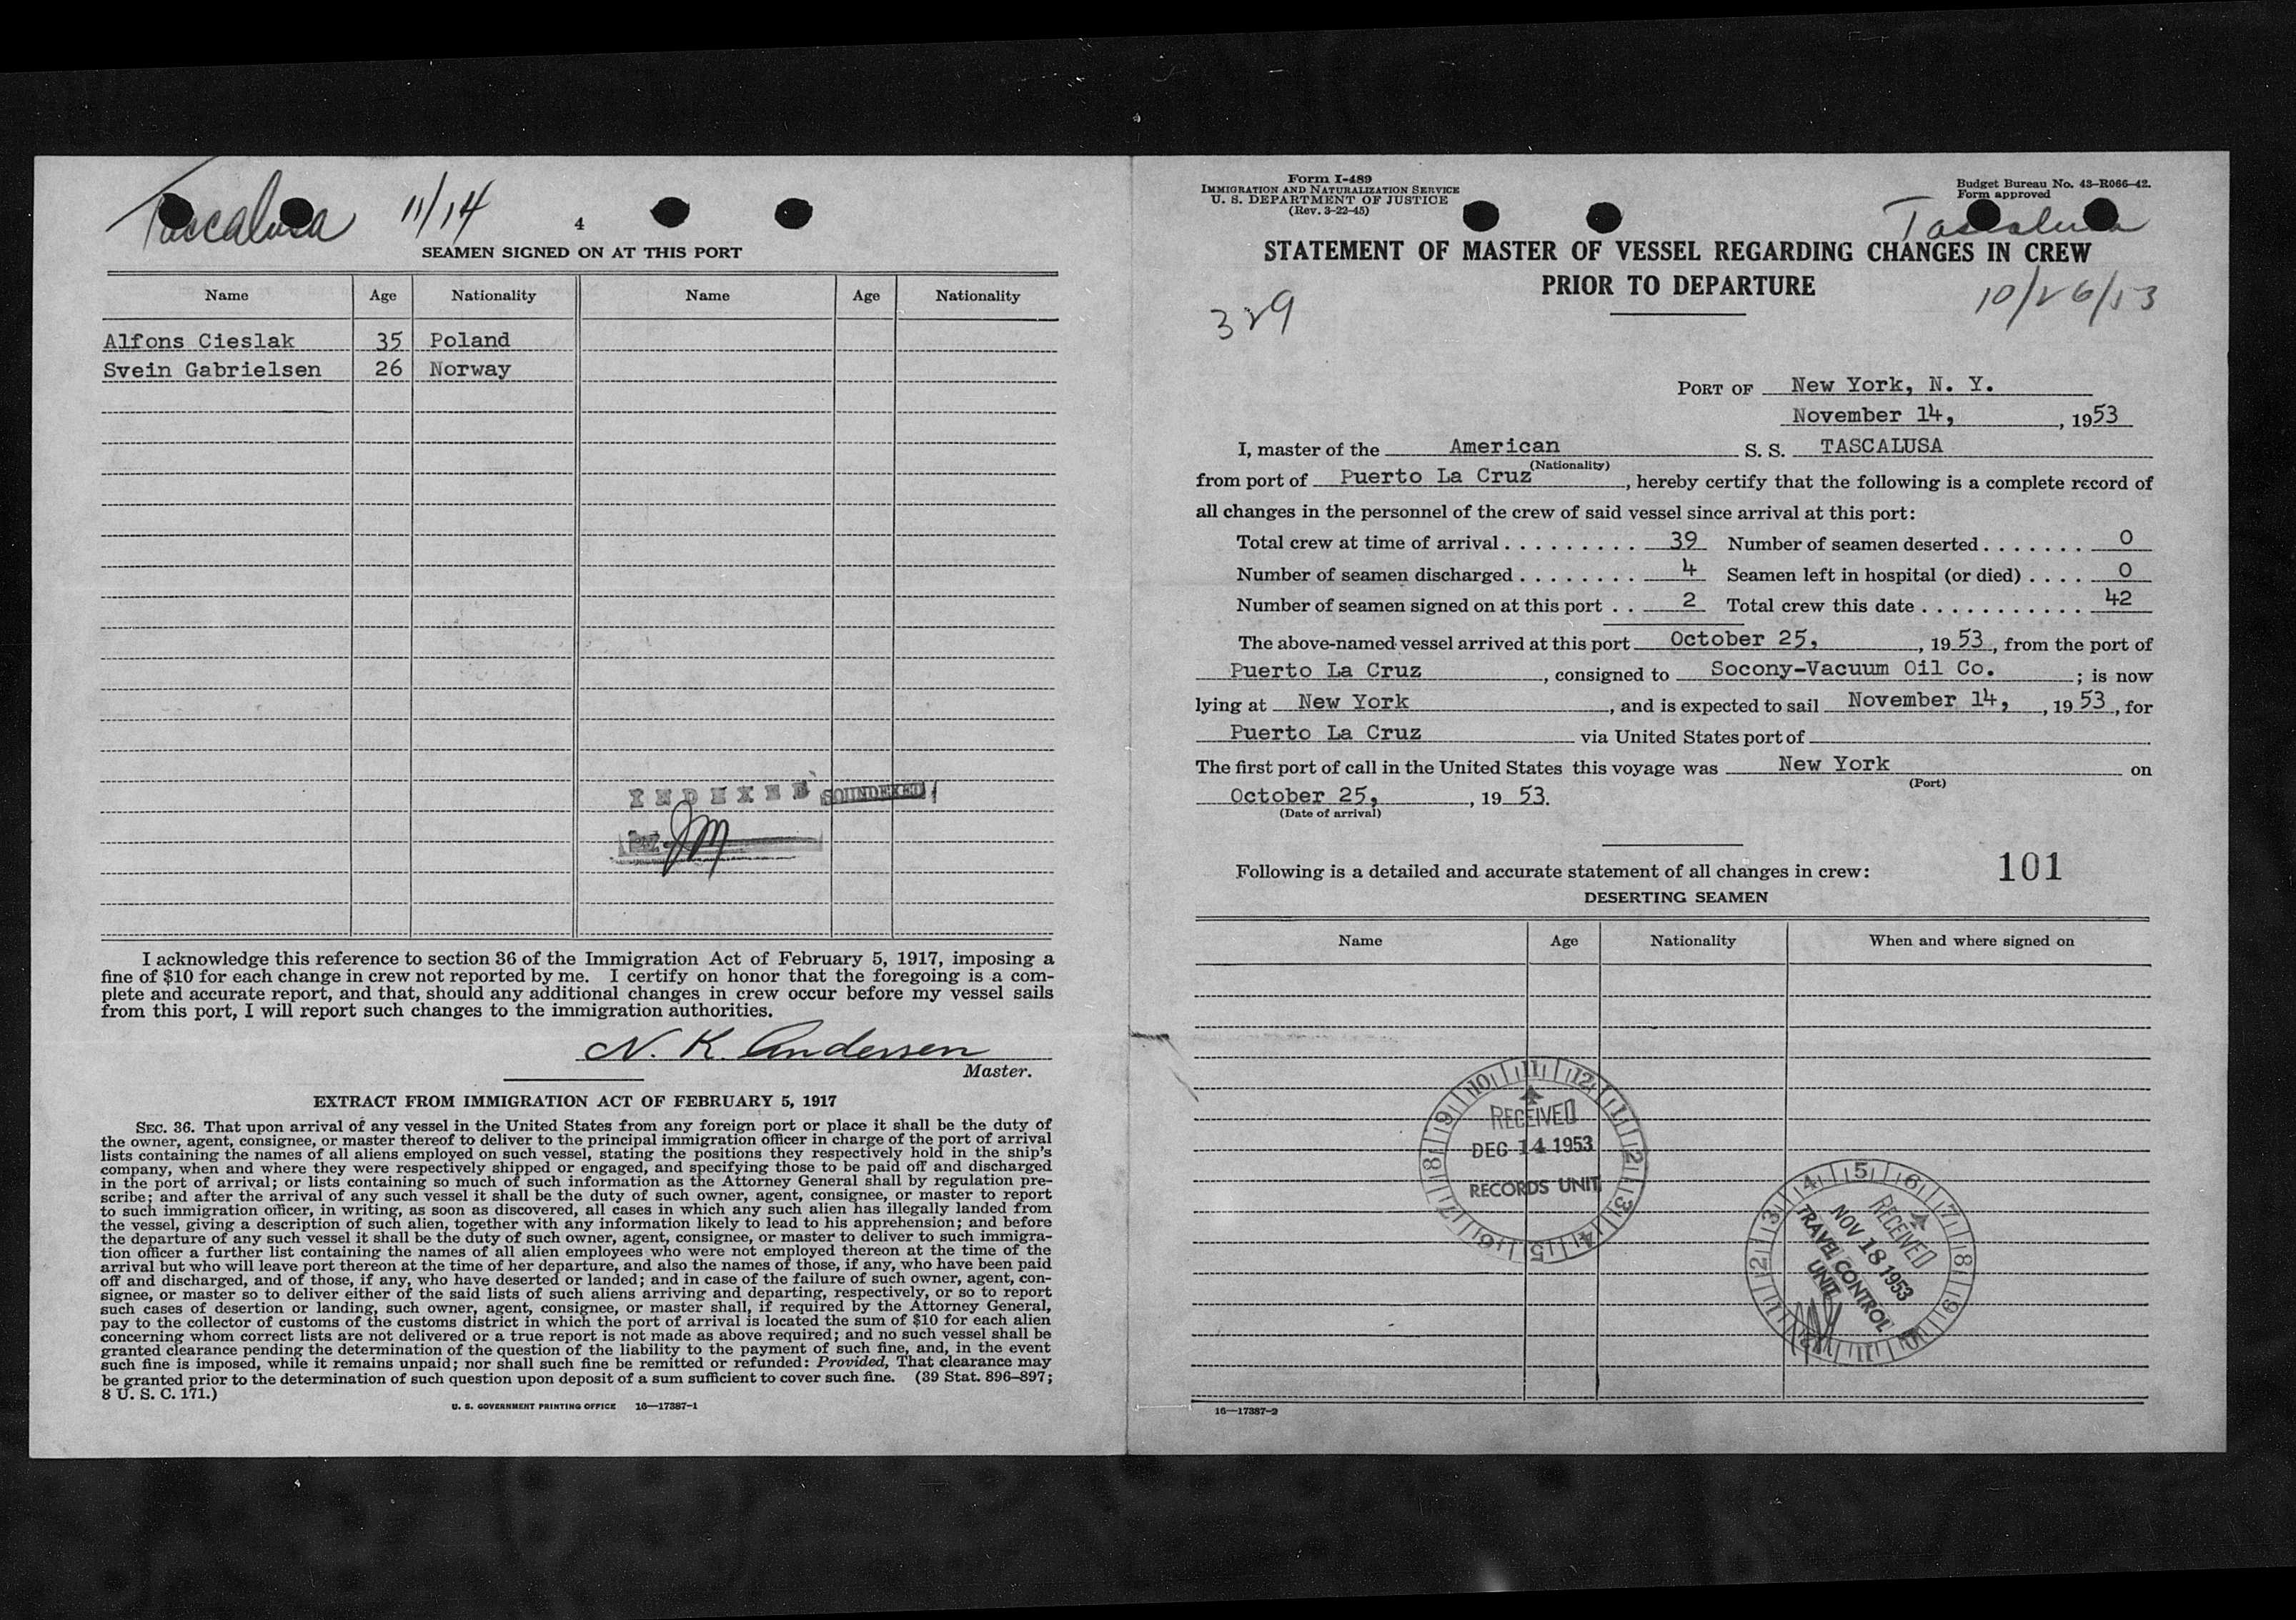 Tascalusa 11/14
4
SEAMEN SIGNED ON AT THIS PORT
Name Age Nationality Name Age Nationality
Alfons Cieslak 35 Poland
Svein Gabrielsen 26 Norway
INDEXED SOUNDEXED
JM
I acknowledge this reference to section 36 of the Immigration Act of February 5, 1917, imposing a
fine of $10 for each change in crew not reported by me. I certify on honor that the foregoing is a com-
plete and accurate report, and that, should any additional changes in crew occur before my vessel sails
from this port, I will report such changes to the immigration authorities.
N. K. Andersen
Master.
EXTRACT FROM IMMIGRATION ACT OF FEBRUARY 5, 1917
SEC. 36. That upon arrival of any vessel in the United States from any foreign port or place it shall be the duty of
the owner, agent, consignee, or master thereof to deliver to the principal immigration officer in charge of the port of arrival
lists containing the names of all aliens employed on such vessel, stating the positions they respectively hold in the ship's
company, when and where they were respectively shipped or engaged, and specifying those to be paid off and discharged
in the port of arrival; or lists containing so much of such information as the Attorney General shall by regulation pre-
scribe; and after the arrival of any such vessel it shall be the duty of such owner, agent, consignee, or master to report
to such immigration officer, in writing, as soon as discovered, all cases in which any such alien has illegally landed from
the vessel, giving a description of such alien, together with any information likely to lead to his apprehension; and before
the departure of any such vessel it shall be the duty of such owner, agent, consignee, or master to deliver to such immigra-
tion officer a further list containing the names of all alien employees who were not employed thereon at the time of the
arrival but who will leave port thereon at the time of her departure, and also the names of those, if any, who have been paid
off and discharged, and of those, if any, who have deserted or landed; and in case of the failure of such owner, agent, con-
signee, or master so to deliver either of the said lists of such aliens arriving and departing, respectively, or so to report
such cases of desertion or landing, such owner, agent, consignee, or master shall, if required by the Attorney General,
pay to the collector of customs of the customs district in which the port of arrival is located the sum of $10 for each alien
concerning whom correct lists are not delivered or a true report is not made as above required; and no such vessel shall be
granted clearance pending the determination of the question of the liability to the payment of such fine, and, in the event
such fine is imposed, while it remains unpaid; nor shall such fine be remitted or refunded: Provided, That clearance may
be granted prior to the determination of such question upon deposit of a sum sufficient to cover such fine. (39 Stat. 896–897;
8 U. S. C. 171.)
U. S. GOVERNMENT PRINTING OFFICE 16—17387-1
Form I-489
IMMIGRATION AND NATURALIZATION SERVICE
U. S. DEPARTMENT OF JUSTICE
(Rev. 3-22-45)
Budget Bureau No. 43-R066-42.
Form approved
Tascalusa
STATEMENT OF MASTER OF VESSEL REGARDING CHANGES IN CREW
PRIOR TO DEPARTURE
329
10/26/53
PORT OF New York, N. Y.
November 14, , 1953
I, master of the American S. S. TASCALUSA
(Nationality)
from port of Puerto La Cruz, hereby certify that the following is a complete record of
all changes in the personnel of the crew of said vessel since arrival at this port:
Total crew at time of arrival . . . . . . . . . 39 Number of seamen deserted . . . . . . . 0
Number of seamen discharged . . . . . . . . 4 Seamen left in hospital (or died) . . . . 0
Number of seamen signed on at this port . . 2 Total crew this date . . . . . . . . . . . 42
The above-named vessel arrived at this port October 25, , 1953, from the port of
Puerto La Cruz , consigned to Socony-Vacuum Oil Co. ; is now
lying at New York , and is expected to sail November 14, , 1953, for
Puerto La Cruz via United States port of
The first port of call in the United States this voyage was New York on
(Port)
October 25, , 1953.
(Date of arrival)
Following is a detailed and accurate statement of all changes in crew: 101
DESERTING SEAMEN
Name Age Nationality When and where signed on
RECEIVED
DEC 14 1953
RECORDS UNIT
RECEIVED
NOV 18 1953
TRAVEL CONTROL
UNIT
16—17387-2